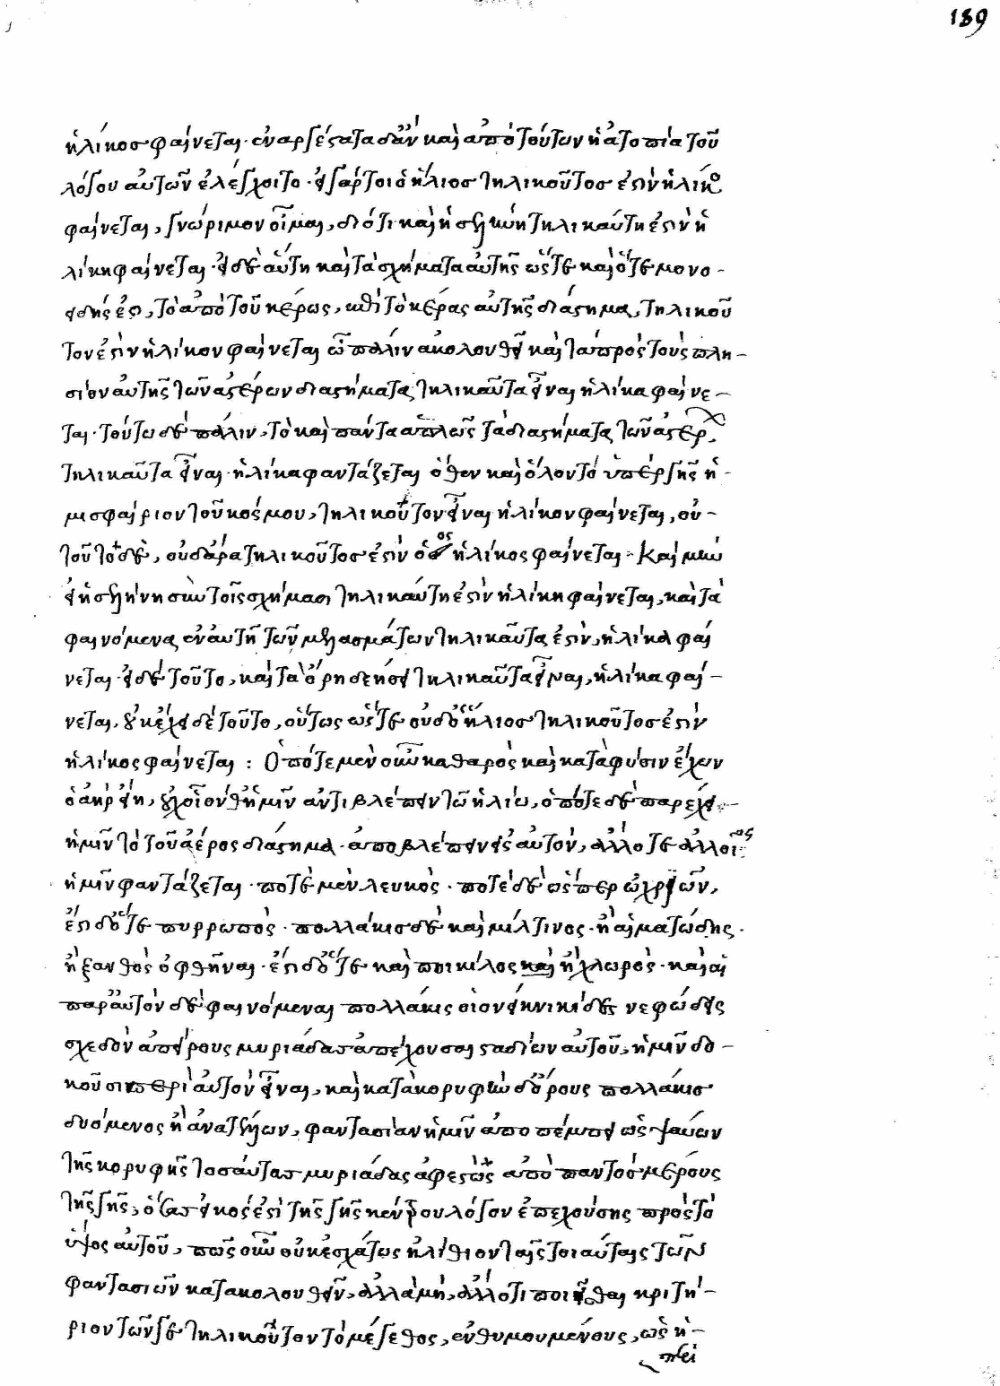 189
ἡλίκος φαίνεται. ἐναργέστατα δ' ἂν καὶ ἀπὸ τούτων ἡ ἀτοπία τοῦ
λόγου αὐτῶν ἐλέγχοιτο. εἰ γάρ τοι ὁ ἥλιος τηλικοῦτος ἐστὶν ἡλίκος
φαίνεται, γνώριμον οἶμαι, διότι καὶ ἡ σελήνη τηλικαύτη ἐστὶν ἡ-
λίκη φαίνεται. εἰ δὲ αὕτη καὶ τὰ σχήματα αὐτῆς ὥστε καὶ ὅτε μηνο-
ειδής ἐστι, τὸ ἀπὸ τοῦ κέρως, ἐπὶ τὸ κέρας αὐτῆς διάστημα, τηλικοῦ
τον ἐστὶν ἡλίκον φαίνεται ᾧ πάλιν ἀκολουθεῖ καὶ τὰ πρὸς τοὺς πλη-
σίον αὐτῆς τῶν ἀστέρων διαστήματα τηλικαῦτα εἶναι ἡλίκα φαίνε-
ται. τούτῳ δὲ πάλιν, τὸ καὶ πάντα ἁπλῶς τὰ διαστήματα τῶν ἀστέρων
τηλικαῦτα εἶναι. ἡλίκα φαντάζεται ὅθεν καὶ ὅλον τὸ ὑπὲρ γῆς ἡ-
μισφαίριον τοῦ κόσμου, τηλικοῦτον εἶναι ἡλίκον φαίνεται, οὐ-
τοῦτο δέ, οὐδ' ἄρα τηλικοῦτος ἐστὶν ὁ ἥλιος ἡλίκος φαίνεται. Καὶ μὴν
εἰ ἡ σελήνη σὺν τοῖς σχήμασι τηλικαύτη ἐστὶν ἡλίκη φαίνεται, καὶ τὰ
φαινόμενα ἐν αὐτῇ τῶν μελασμάτων τηλικαῦτα ἐστὶν, ἡλίκα φαί
νεται. εἰ δὲ τοῦτο, καὶ τὰ ὄρη δεήσει τηλικαῦτα εἶναι, ἡλίκα φαί-
νεται, οὐκ ἔχει δὲ τοῦτο, οὕτως ὥστε οὐδὲ ὁ ἥλιος τηλικοῦτος ἐστὶν
ἡλίκος φαίνεται: Ὁπότε μὲν οὖν καθαρὸς καὶ κατὰ φύσιν ἔχων
ὁ ἀὴρ εἴη, οὐχ οἷόν θ' ἡμῖν ἀντιβλέπειν τῷ ἡλίῳ, ὁπότε δὲ παρέχει
ἡμῖν τὸ τοῦ ἀέρος διάστημα. ἀποβλέπειν εἰς αὐτὸν, ἄλλοτε ἀλλοῖος
ἡμῖν φαντάζεται. ποτὲ μὲν λευκός. ποτὲ δὲ ὥσπερ ὠχριῶν,
ἔστι δ' ὅτε πυρρωπός. πολλάκις δὲ καὶ μίλτινος. ἢ αἱματώδης.
ἢ ξανθὸς ὀφθῆναι. ἔστι δ' ὅτε καὶ ποικίλος καὶ ἢ χλωρός. καὶ αἱ
παρ' αὐτὸν δὲ φαινόμεναι πολλάκις οἱονεὶ κηλῖδες νεφώδεις
σχεδὸν ἀπείρους μυριάδας ἀπέχουσαι σταδίων αὐτοῦ, ἡμῖν δο-
κοῦσι περὶ αὐτὸν εἶναι, καὶ κατὰ κορυφὴν δ' ὄρους πολλάκις
δυόμενος ἢ ἀνατέλλων, φαντασίαν ἡμῖν ἀποπέμπει ὡς ψαύων
τῆς κορυφῆς τοσαύτας μυριάδας ἀφεστὼς ἀπὸ παντὸς μέρους
τῆς γῆς, ὅσας εἰκὸς ἐστὶ τῆς γῆς κέντρου λόγον ἐπεχούσης πρὸς τὸ
ὕψος αὐτοῦ, πῶς οὖν οὐκ ἐσχάτως ἠλίθιον ταῖς τοιαύταις τῶν
φαντασιῶν κατακολουθεῖν, ἀλλὰ μὴ, ἄλλο τι ποιεῖσθαι κριτή-
ριον τῶν γε τηλικοῦτον τὸ μέγεθος, ἐνθυμουμένους, ὡς ἡ-